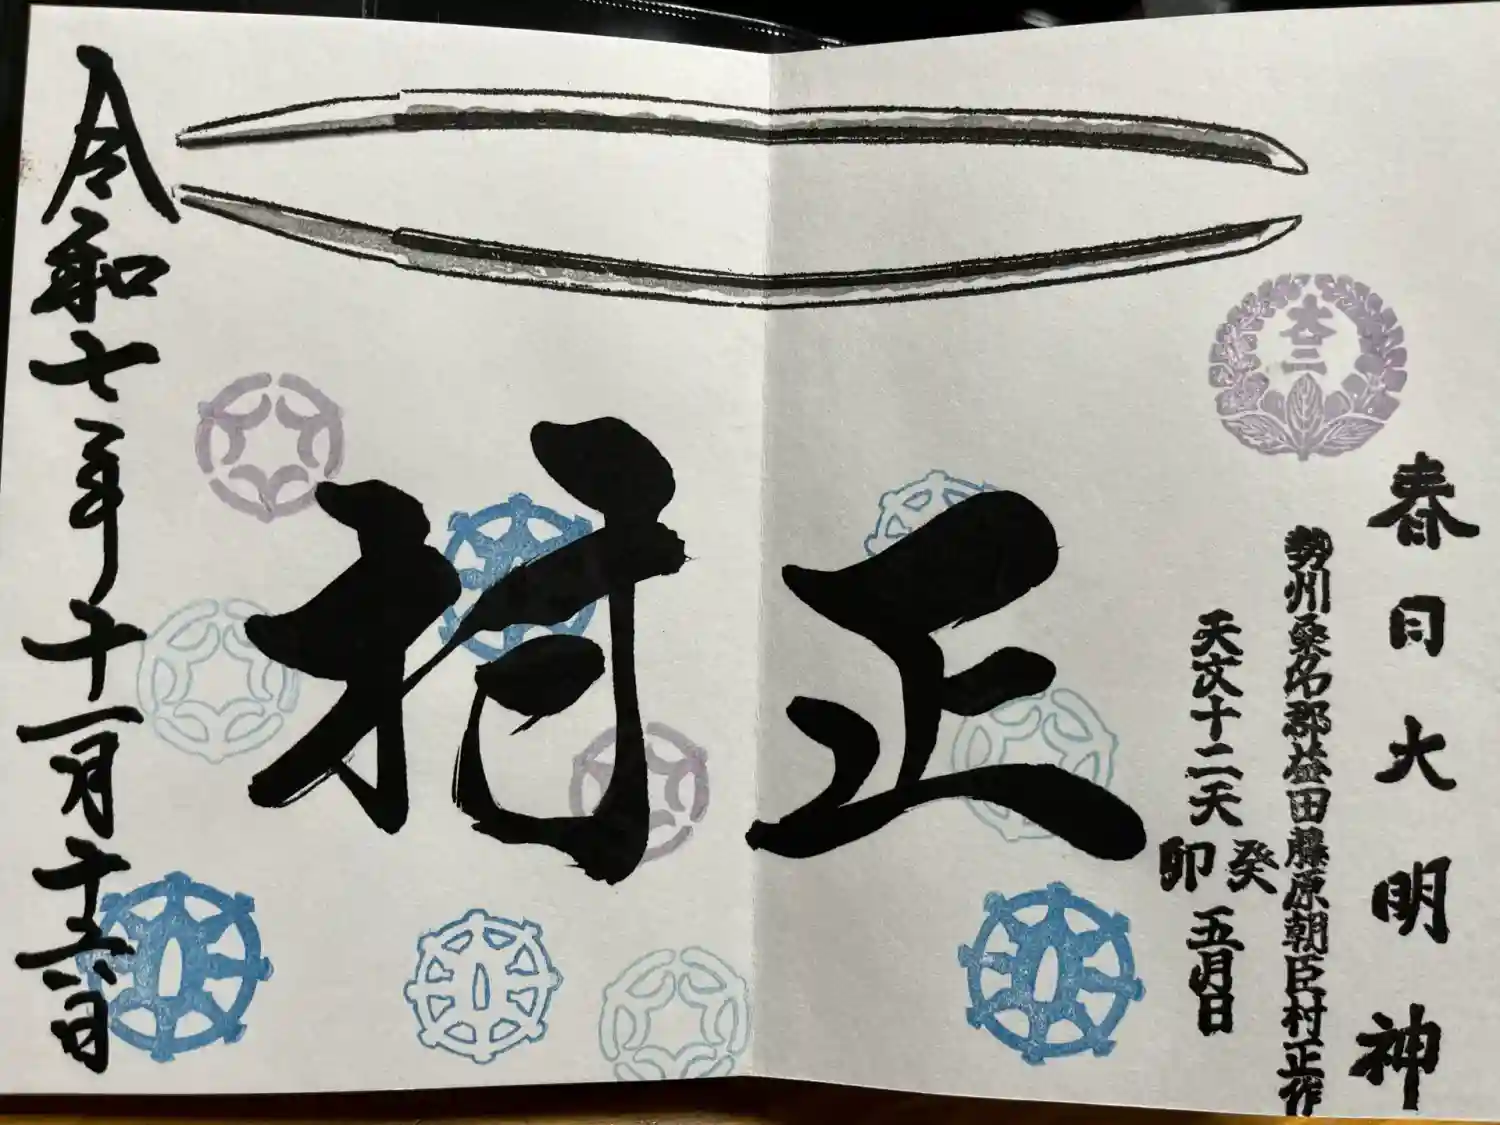 春日大明神
勢州桑名郡益田藤原朝臣村正作
天文十二天癸卯五月日
村正
令和七年十一月十六日